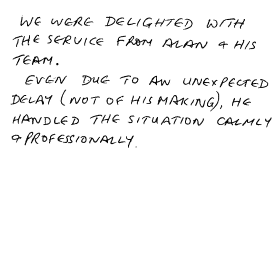 WE WERE DELIGHTED WITH
THE SERVICE FROM ALAN & HIS
TEAM.
EVEN DUE TO AN UNEXPECTED
DELAY (NOT OF HIS MAKING), HE
HANDLED THE SITUATION CALMLY
& PROFESSIONALLY.